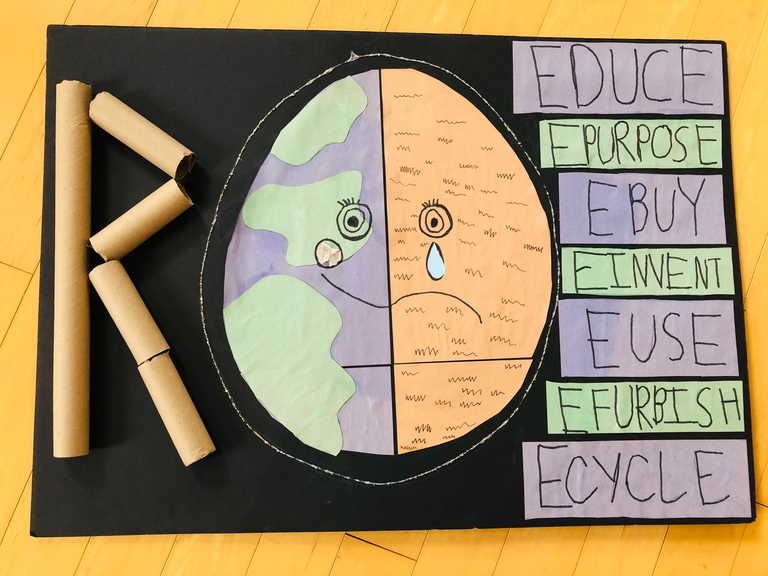 R
EDUCE
EPURPOSE
EBUY
EINVENT
EUSE
EFURBISH
ECYCLE